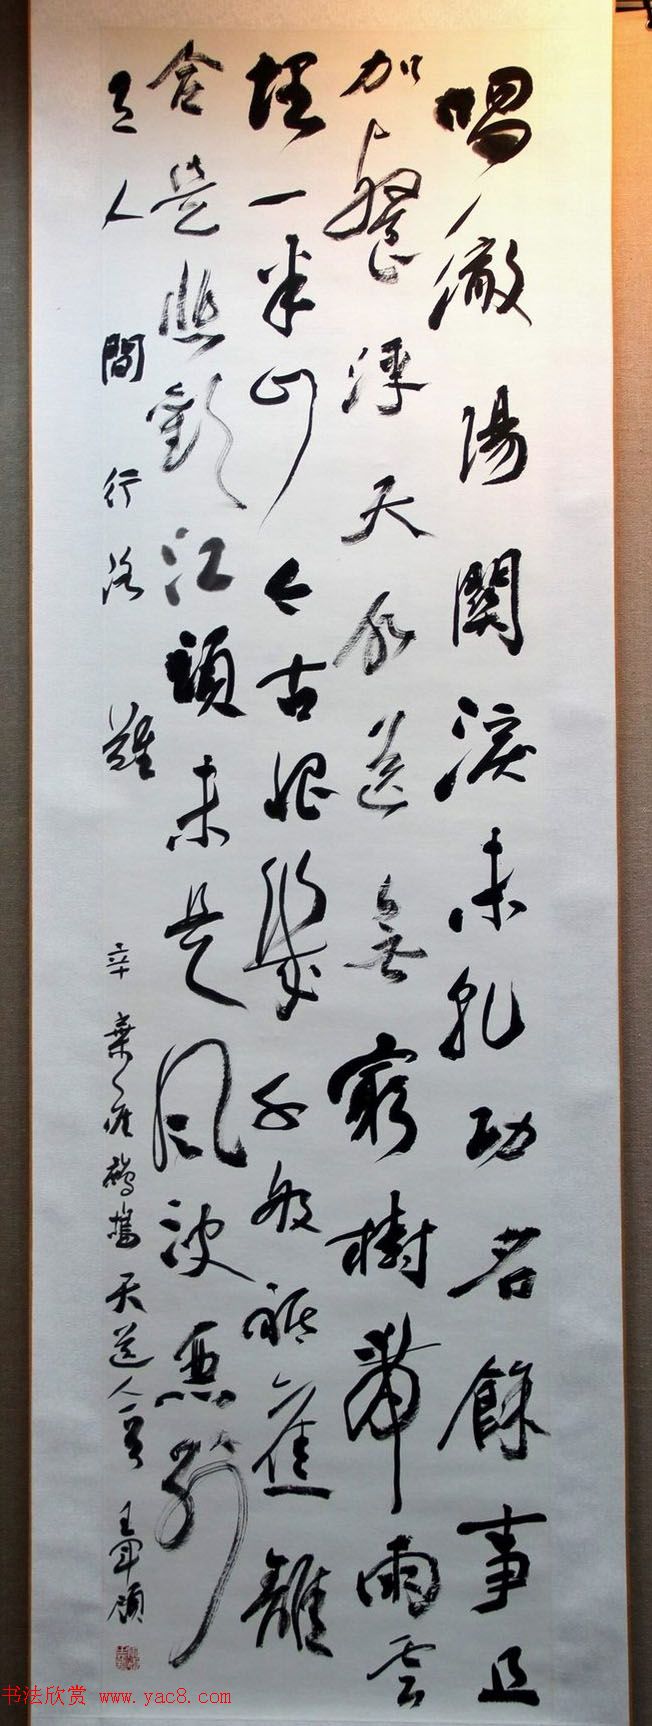 唱徹陽關淚未乾功名餘事且
加餐浮天水送無窮樹帶雨云
埋一半山今古恨幾千般祇應離
合是悲歡江頭未是風波惡別
有人間行路難 辛棄疾鷓鴣天送人一首 王軍
书法欣赏 www.yac8.com